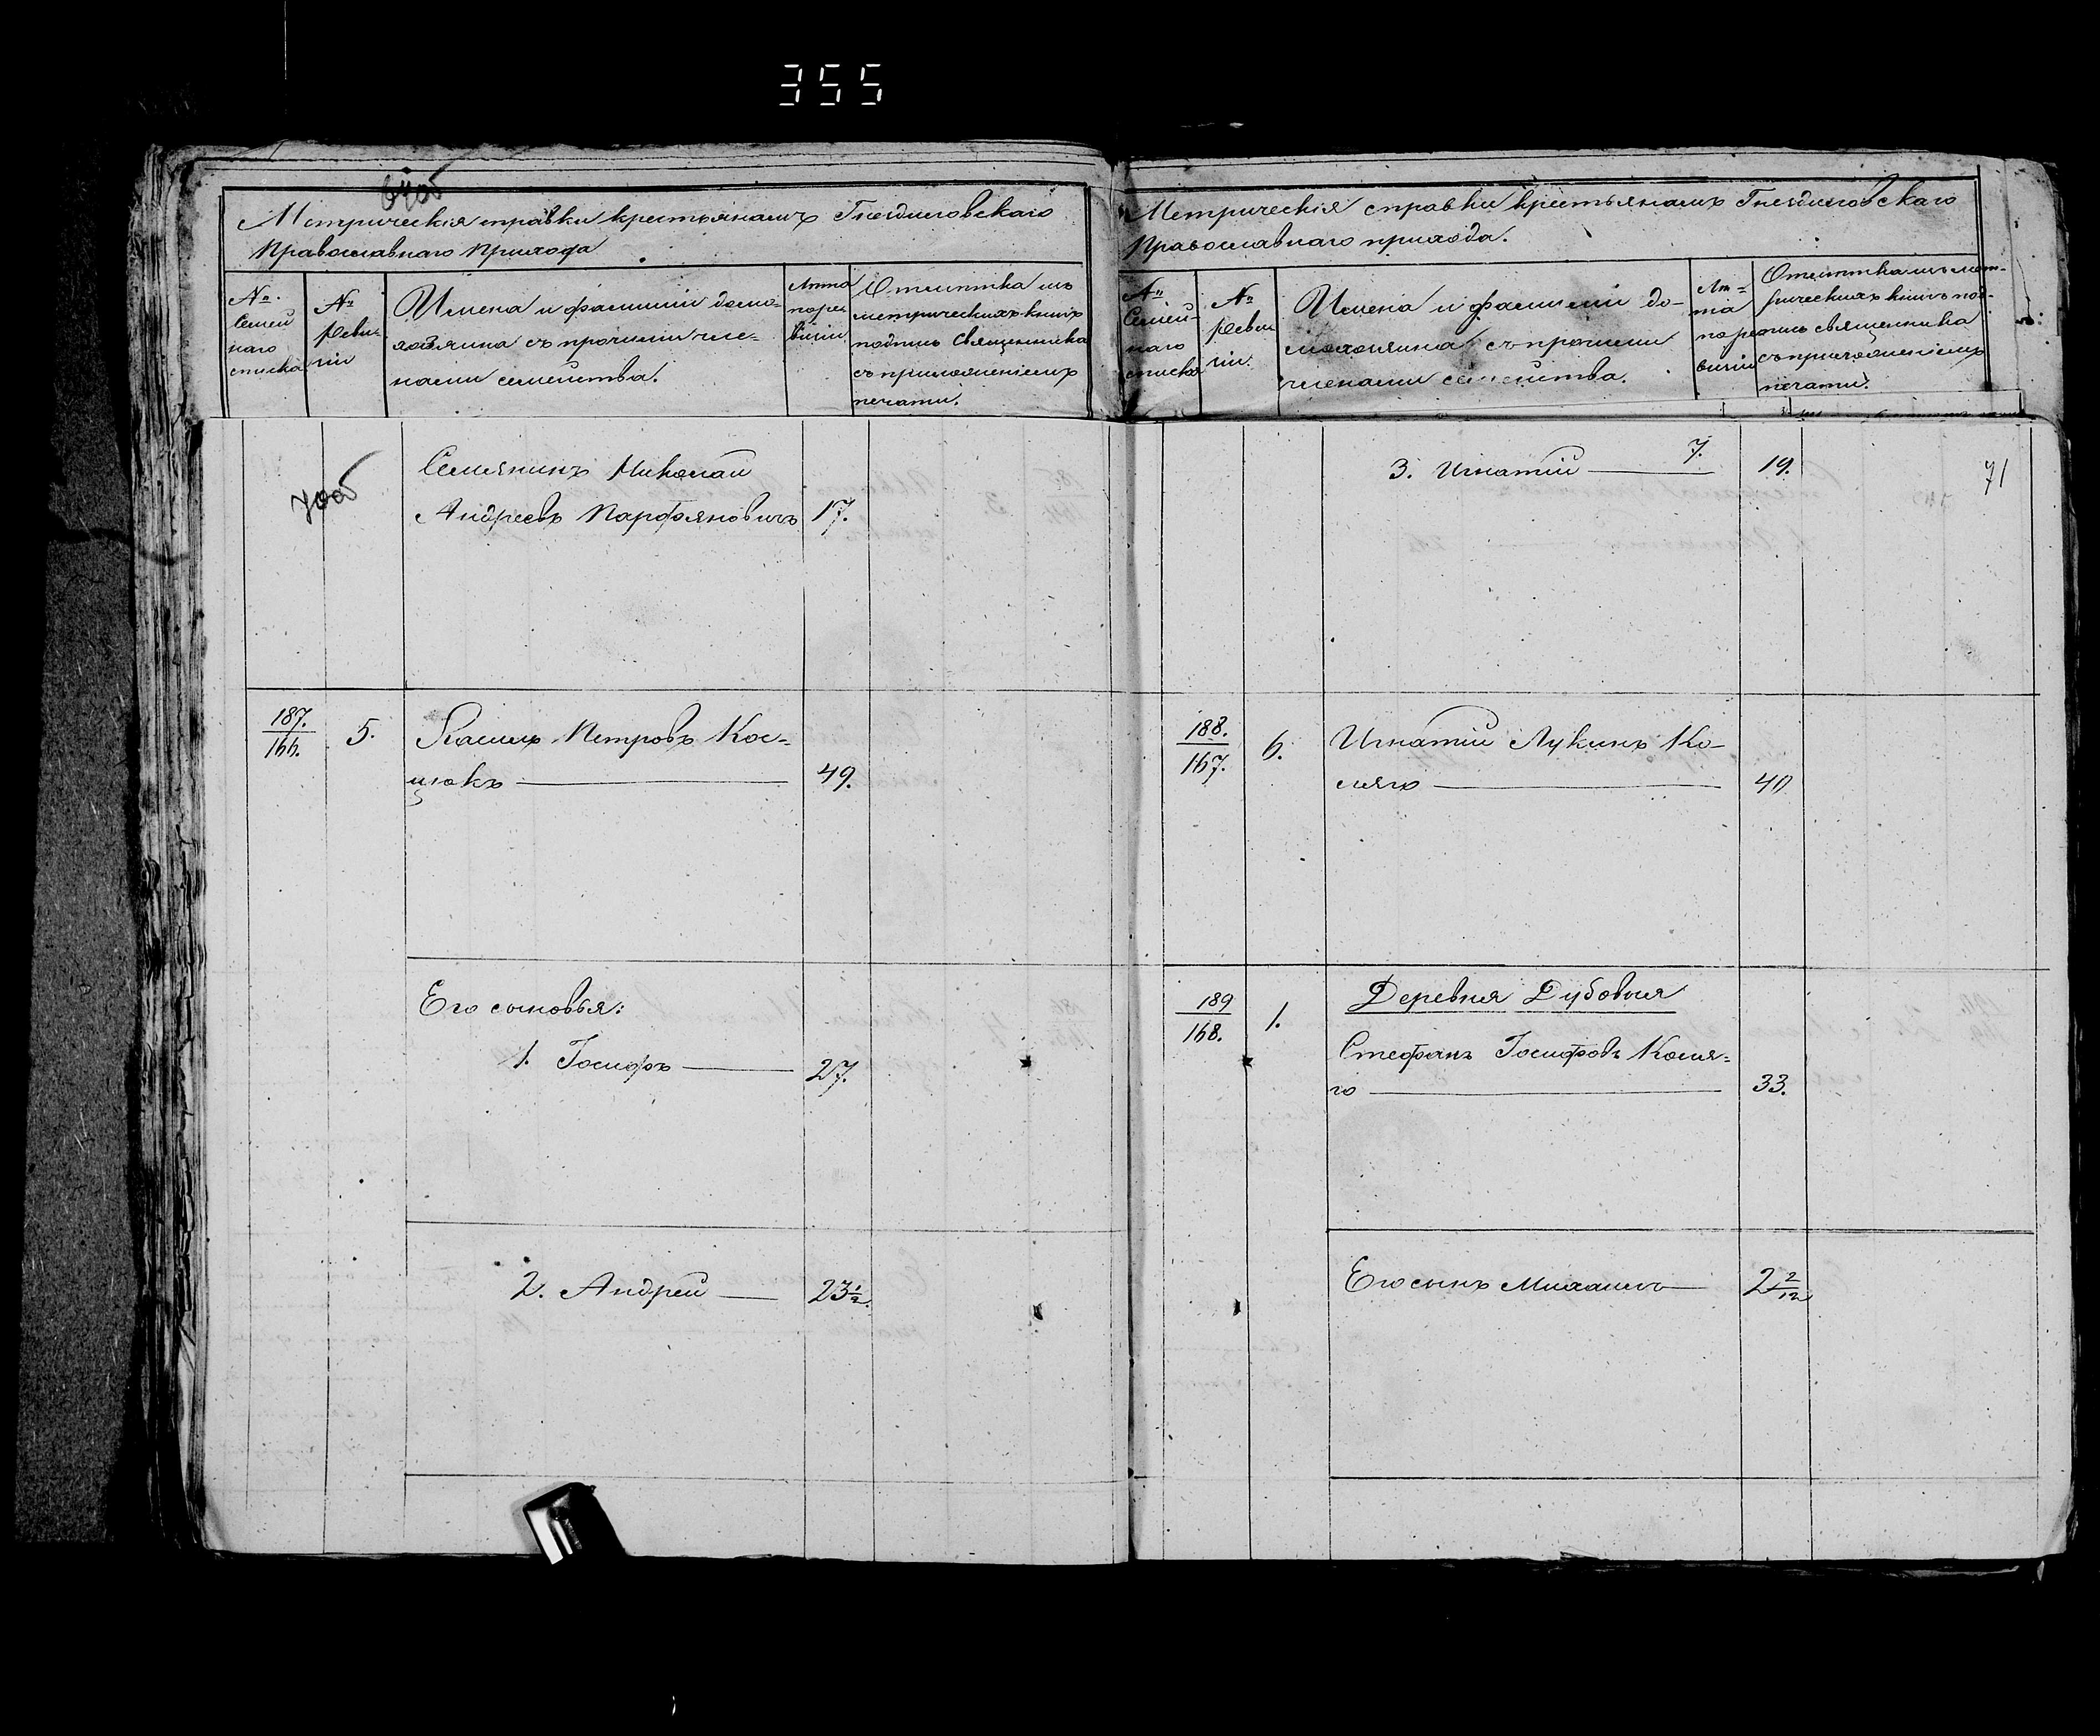 355
64об
Метрическія справки крестьянамъ Гнездиловскаго
Православнаго Прихода
№
Семей
наго
списка
№
Реви
зіи
Имена и фамиліи домо-
хозяина съ прочими чле-
нами семейства.
Лѣта
по ре-
визіи
Отмѣтка изъ
метрическихъ книгъ
подпись Священника
съ приложеніемъ
печати.
70об
Семьянинъ Николай
Андреевъ Парфяновичъ 17.
187.
166. 5. Яковъ Петровъ Кос-
цюкъ 49.
Его сыновья:
1. Іосифъ 27.
2. Андрей 23½.
Метрическія справки крестьянамъ Гнездиловскаго
Православнаго прихода.
№
Семей-
наго
списка
№
Реви
зіи.
Имена и фамиліи до-
мохозяина съ прочими
членами семейства.
Лѣ-
та
по ре
визіи
Отмѣтка изъ мет-
рическихъ книгъ под-
пись священника
съ приложеніемъ
печати.
71
3. Игнатій 7. 19.
188.
167. 6. Игнатій Лукинъ Ко-
ляго 40
189
168. 1. Деревня Дубовня
Стефанъ Іосифовъ Коля-
го 33.
Его сынъ Михаилъ 2 2/12